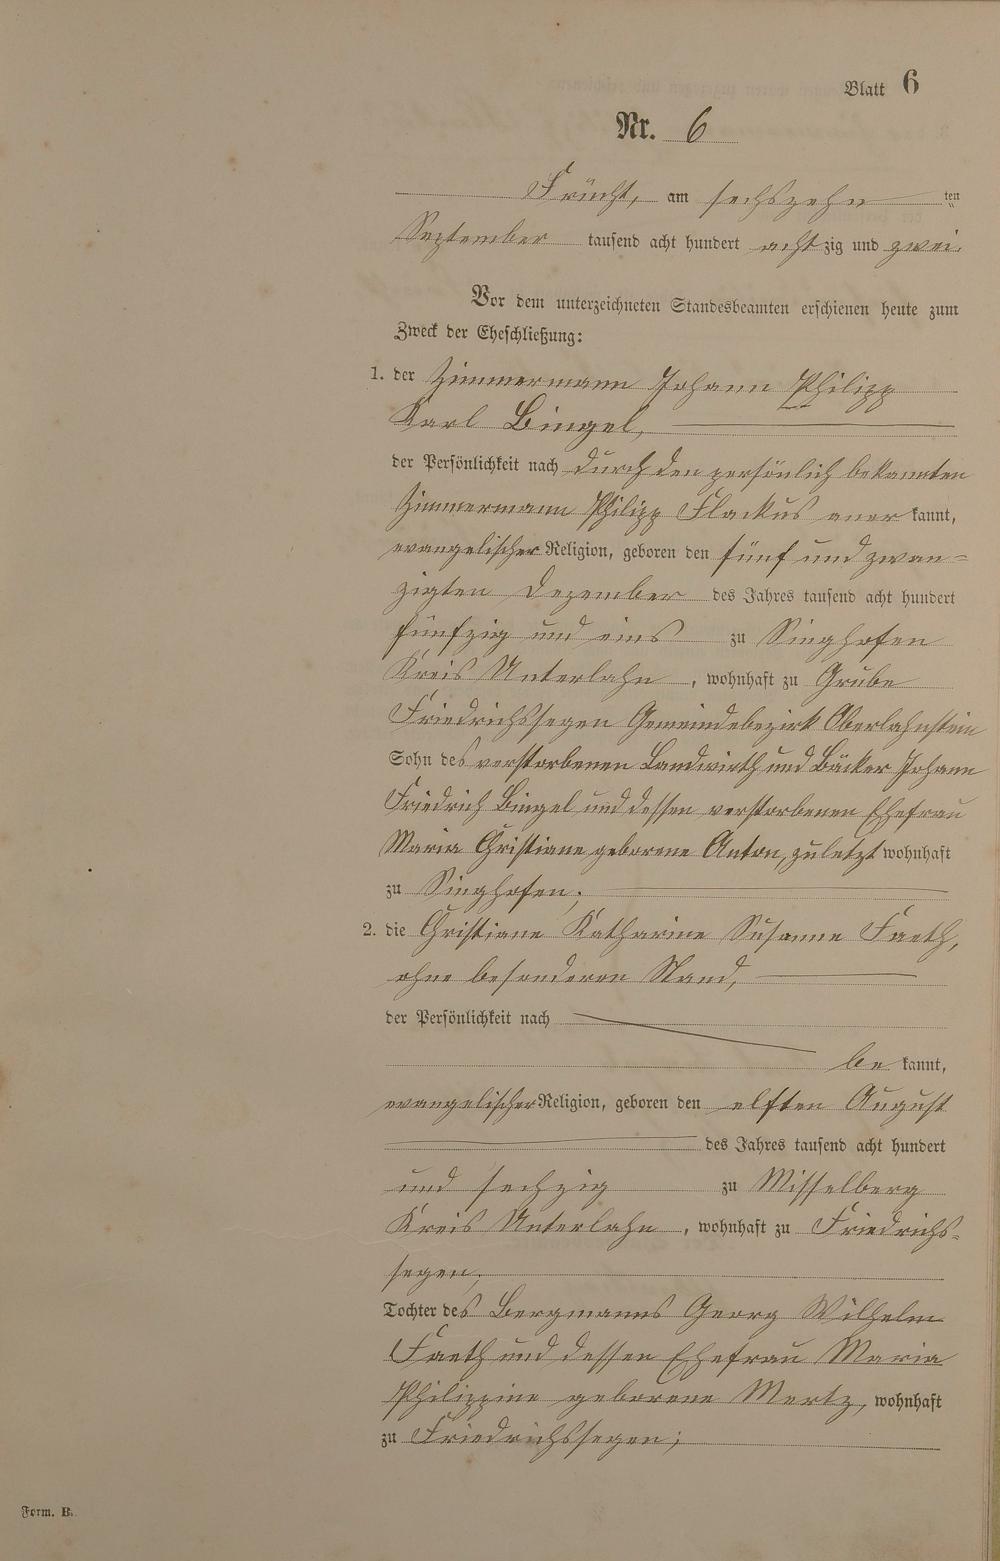 Blatt 6
Nr. 6
Frücht, am sechszehn ten
September tausend acht hundert achtzig und zwei.
Vor dem unterzeichneten Standesbeamten erschienen heute zum
Zweck der Eheschließung:
1. der Zimmermann Johann Philipp
Karl Bingel,
der Persönlichkeit nach durch den persönlich bekannten
Zimmermann Philipp Flackus anerkannt,
evangelischer Religion, geboren den fünf und zwan-
zigten Dezember des Jahres tausend acht hundert
fünfzig und eins zu Singhofen
Kreis Unterlahn, wohnhaft zu Grube
Friedrichssegen Gemeindebezirk Oberlahnstein
Sohn des verstorbenen Landwirth und Bäcker Johann
Friedrich Bingel und dessen verstorbenen Ehefrau
Maria Christiane geborene Anton, zuletzt wohnhaft
zu Singhofen;
2. die Christiane Katharine Susanne Faeth,
ohne besonderen Stand,
der Persönlichkeit nach
bekannt,
evangelischer Religion, geboren den elften August
des Jahres tausend acht hundert
und sechzig zu Misselberg
Kreis Unterlahn, wohnhaft zu Friedrichs-
segen,
Tochter des Bergmanns Georg Wilhelm
Faeth und dessen Ehefrau Maria
Philippine geborene Mertz, wohnhaft
zu Friedrichssegen;
Form. B.